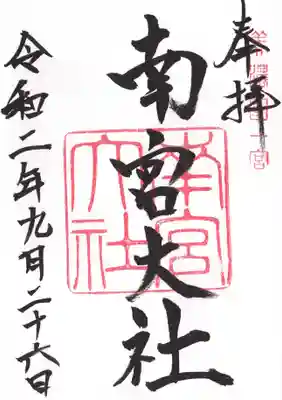 奉拝
南宮大社
南宮
大社
令和二年九月二十六日